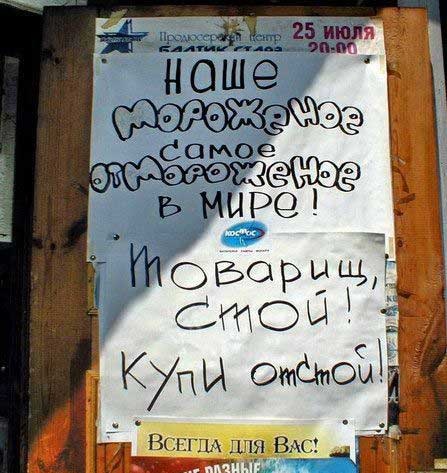 Продюсерский центр
25 ИЮЛЯ
20-00
Наше
мороженое
самое
отмороженое
в мире!
КОСМОС
Товарищ,
стой!
Купи отстой!
ВСЕГДА ДЛЯ ВАС!
РАЗНЫЕ